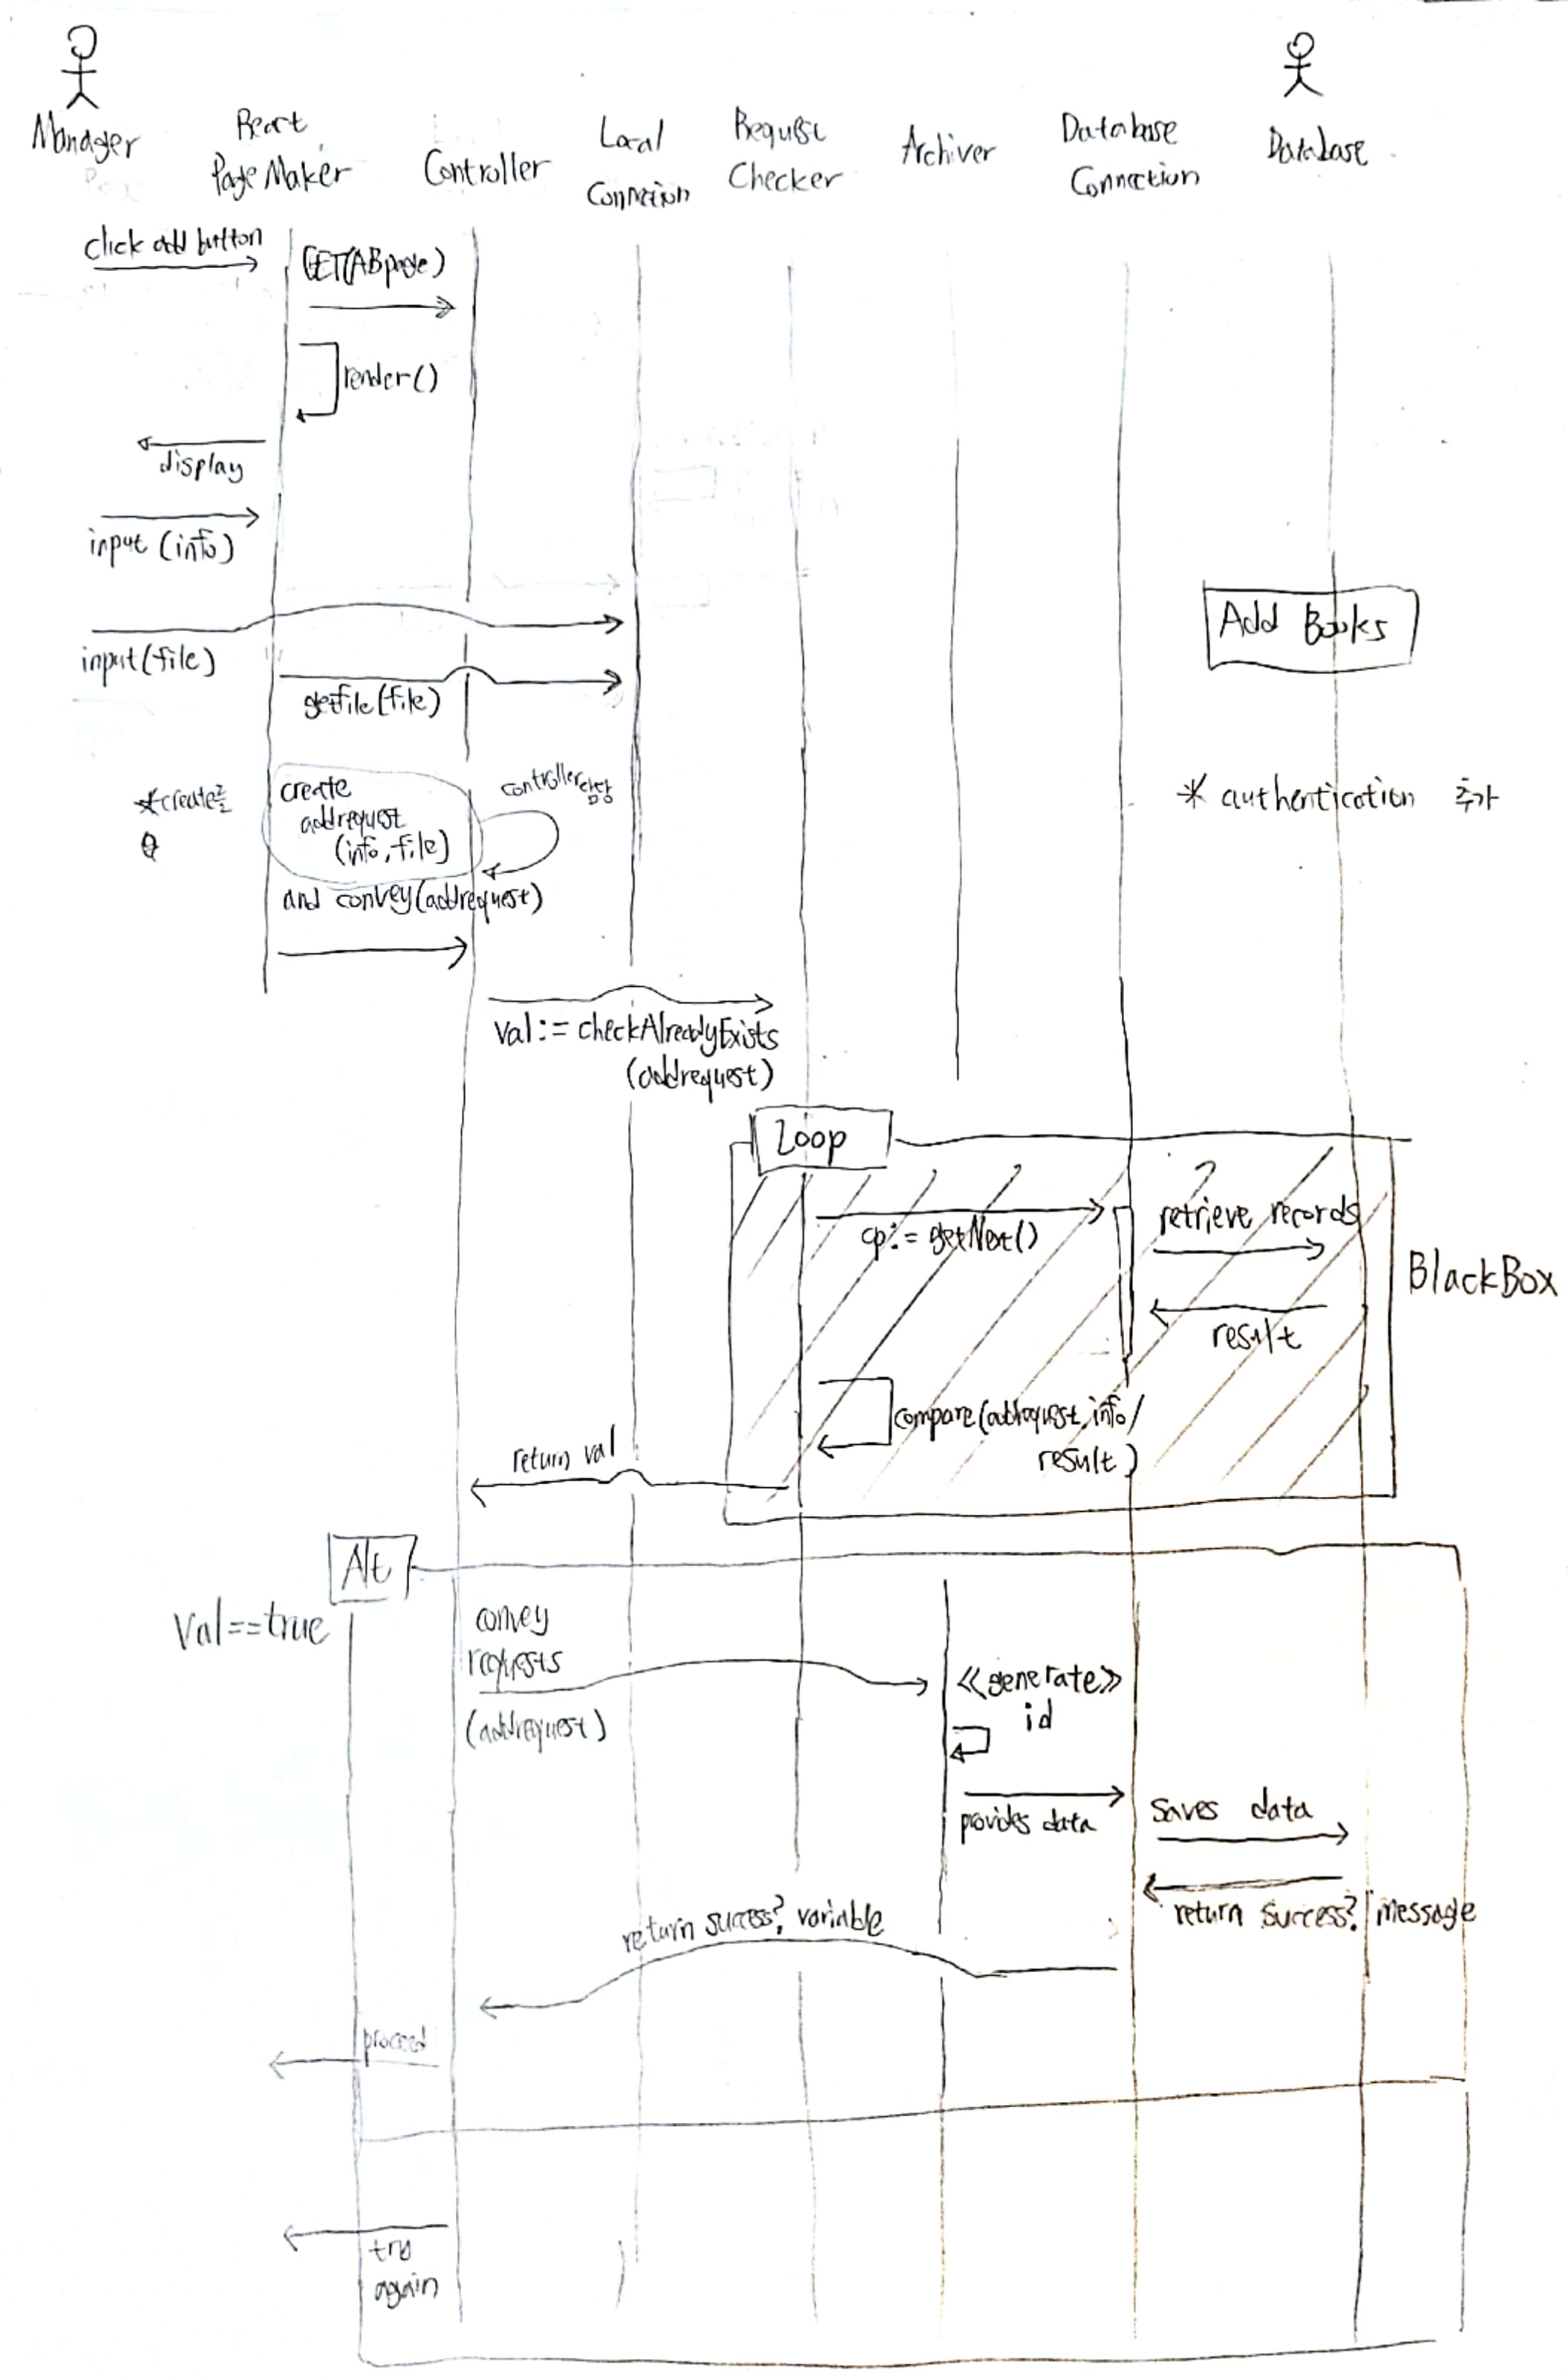 Manager
React
Page Maker
Controller
Local
Connection
Request
Checker
Archiver
Database
Connection
Database
click add button
GET(ABpage)
render()
display
input (info)
input(file)
getfile(file)
Add Books
*create를
create
addrequest
(info, file)
controller담당
and convey(addrequest)
* authentication 추가
val:= checkAlreadyExists
(addrequest)
Loop
cp:= getNext()
?
retrieve records
result
BlackBox
compare(addrequest.info/
result)
return val
Alt
Val==true
convey
requests
(addrequest)
<<generate>>
id
provides data
saves data
return success? message
return success? variable
proceed
try
again